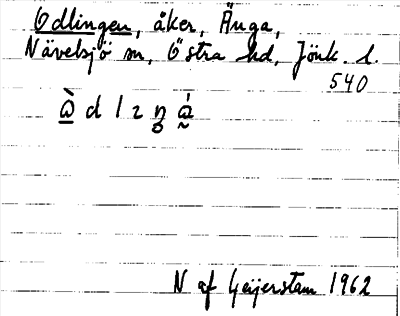 Odlingen, åker, Änga,
Nävelsjö sn, Östra hd, Jönk. l.
540
N af Geijerstam 1962